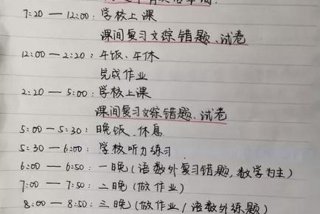 7:20 — 12:00: 学校上课
课间复习文综错题、试卷
12:00 — 2:20: 午饭、午休
完成作业
2:20 — 5:00: 学校上课
课间复习文综错题、试卷
5:00 — 5:30: 晚饭、休息
5:30 — 6:00: 学校听力练习
6:00 — 6:50: 一晚(语数外复习错题,数学为主)
7:00 — 7:50: 二晚(做作业)
8:00 — 8:50: 三晚(做作业/语数外练题)